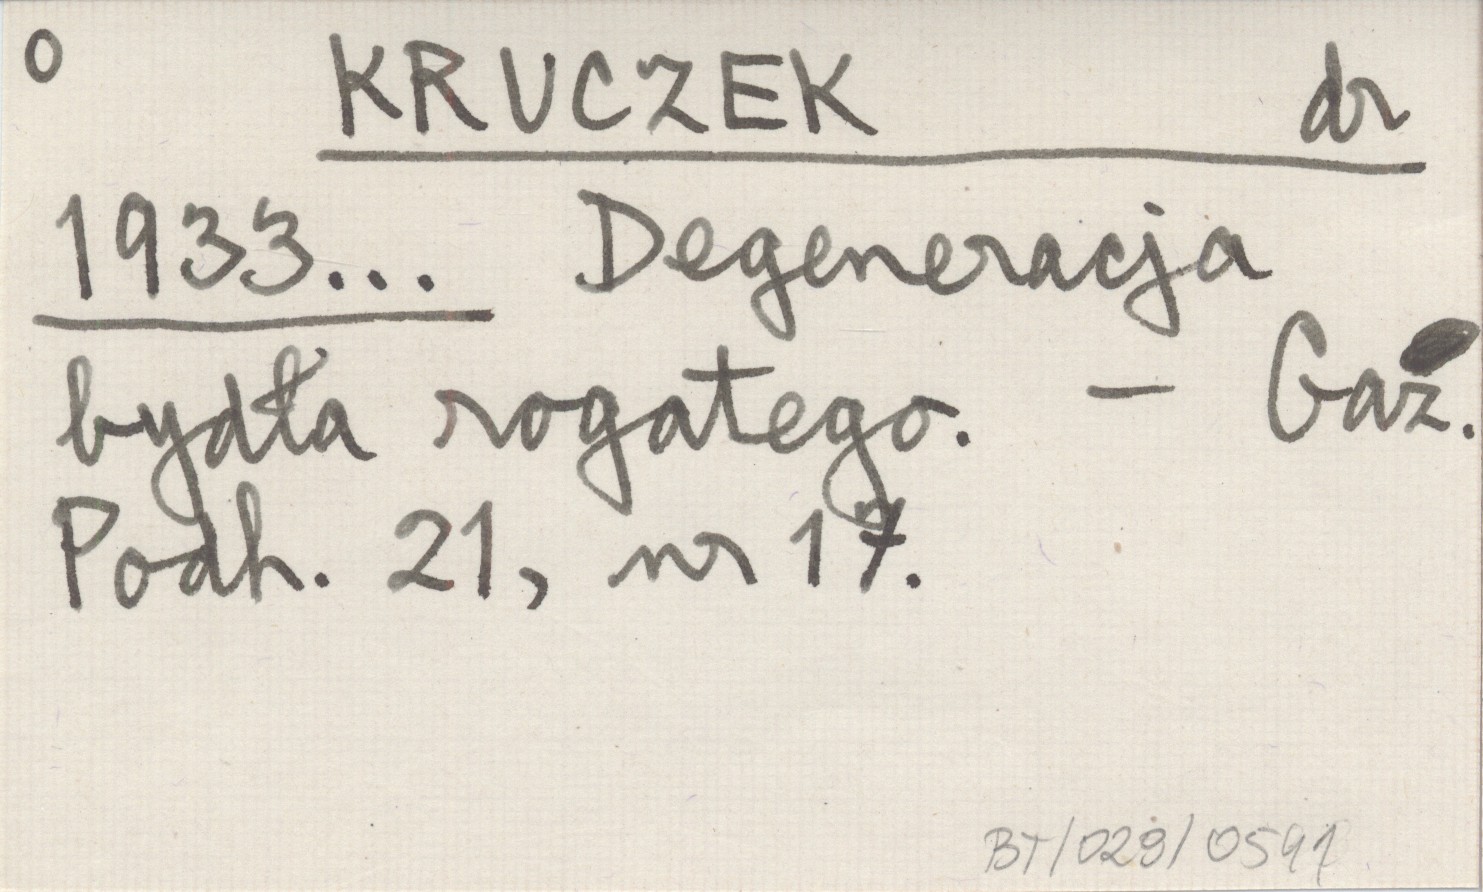 o KRUCZEK dr
1933... Degeneracja
bydła rogatego. - Gaz.
Podh. 21, nr 17.
BT/029/0591